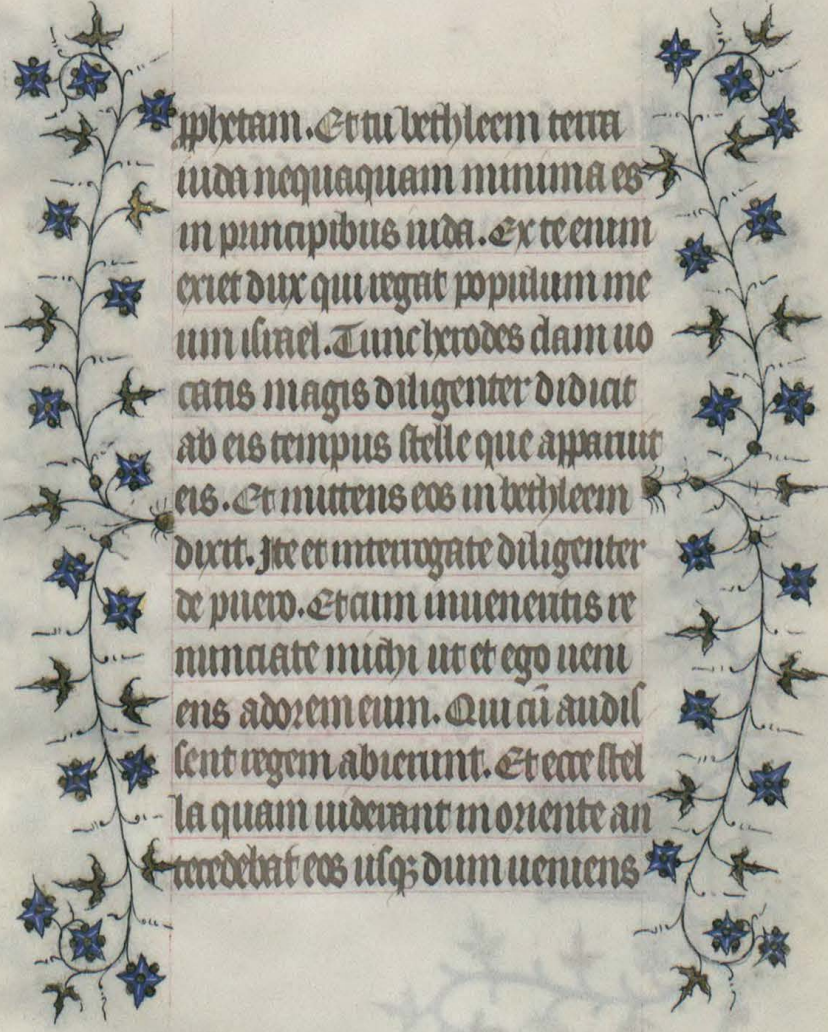 pphetam. Et tu bethleem terra
iuda nequaquam minima es
in principibus iuda. Ex te enim
exiet dux qui regat populum me
um israel. Tunc herodes clam uo
catis magis diligenter didicit
ab eis tempus stelle que apparuit
eis. Et mittens eos in bethleem
dixit. Ite et interrogate diligenter
de puero. Et cum inueneritis re
nunciate michi ut et ego ueni
ens adorem eum. Qui cū audis
sent regem abierunt. Et ecce stel
la quam uiderant in oriente an
tecedebat eos usqꝫ dum ueniens